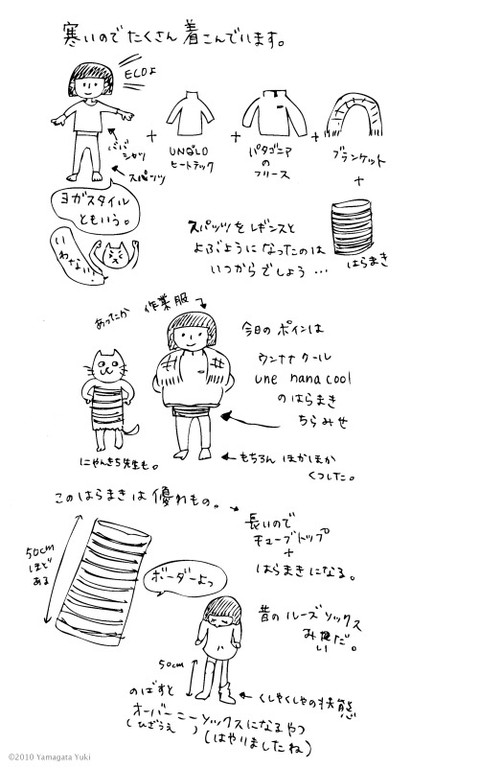 寒いのでたくさん着こんでいます。
ECOよ
ババ
シャツ
スパッツ
+
UNIQLO
ヒートテック
+
パタゴニア
の
フリース
+
ブランケット
+
はらまき
ヨガスタイル
ともいう。
いわない!
スパッツをレギンスと
よぶようになったのは
いつからでしょう…
あったか 作業服
にゃんきち先生も。
今日のポインは
ウンナナクール
une nana cool
のはらまき
ちらみせ
もちろん ほかほか
くつした。
このはらまきは優れもの。
50cm
ほど
ある
長いので
チューブトップ
+
はらまきになる。
ボーダーよっ
昔のルーズソックス
み抱だ。
い
50cm
くしゃくしゃの状態
のばすと
オーバーニーソックスになるやつ
(ひざうえ)
(はやりましたね)
©2010 Yamagata Yuki